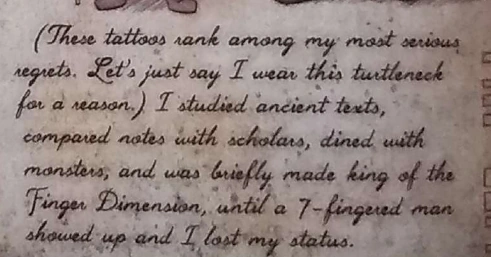 (These tattoos rank among my most serious
regrets. Let's just say I wear this turtleneck
for a reason.) I studied ancient texts,
compared notes with scholars, dined with
monsters, and was briefly made king of the
Finger Dimension, until a 7-fingered man
showed up and I lost my status.